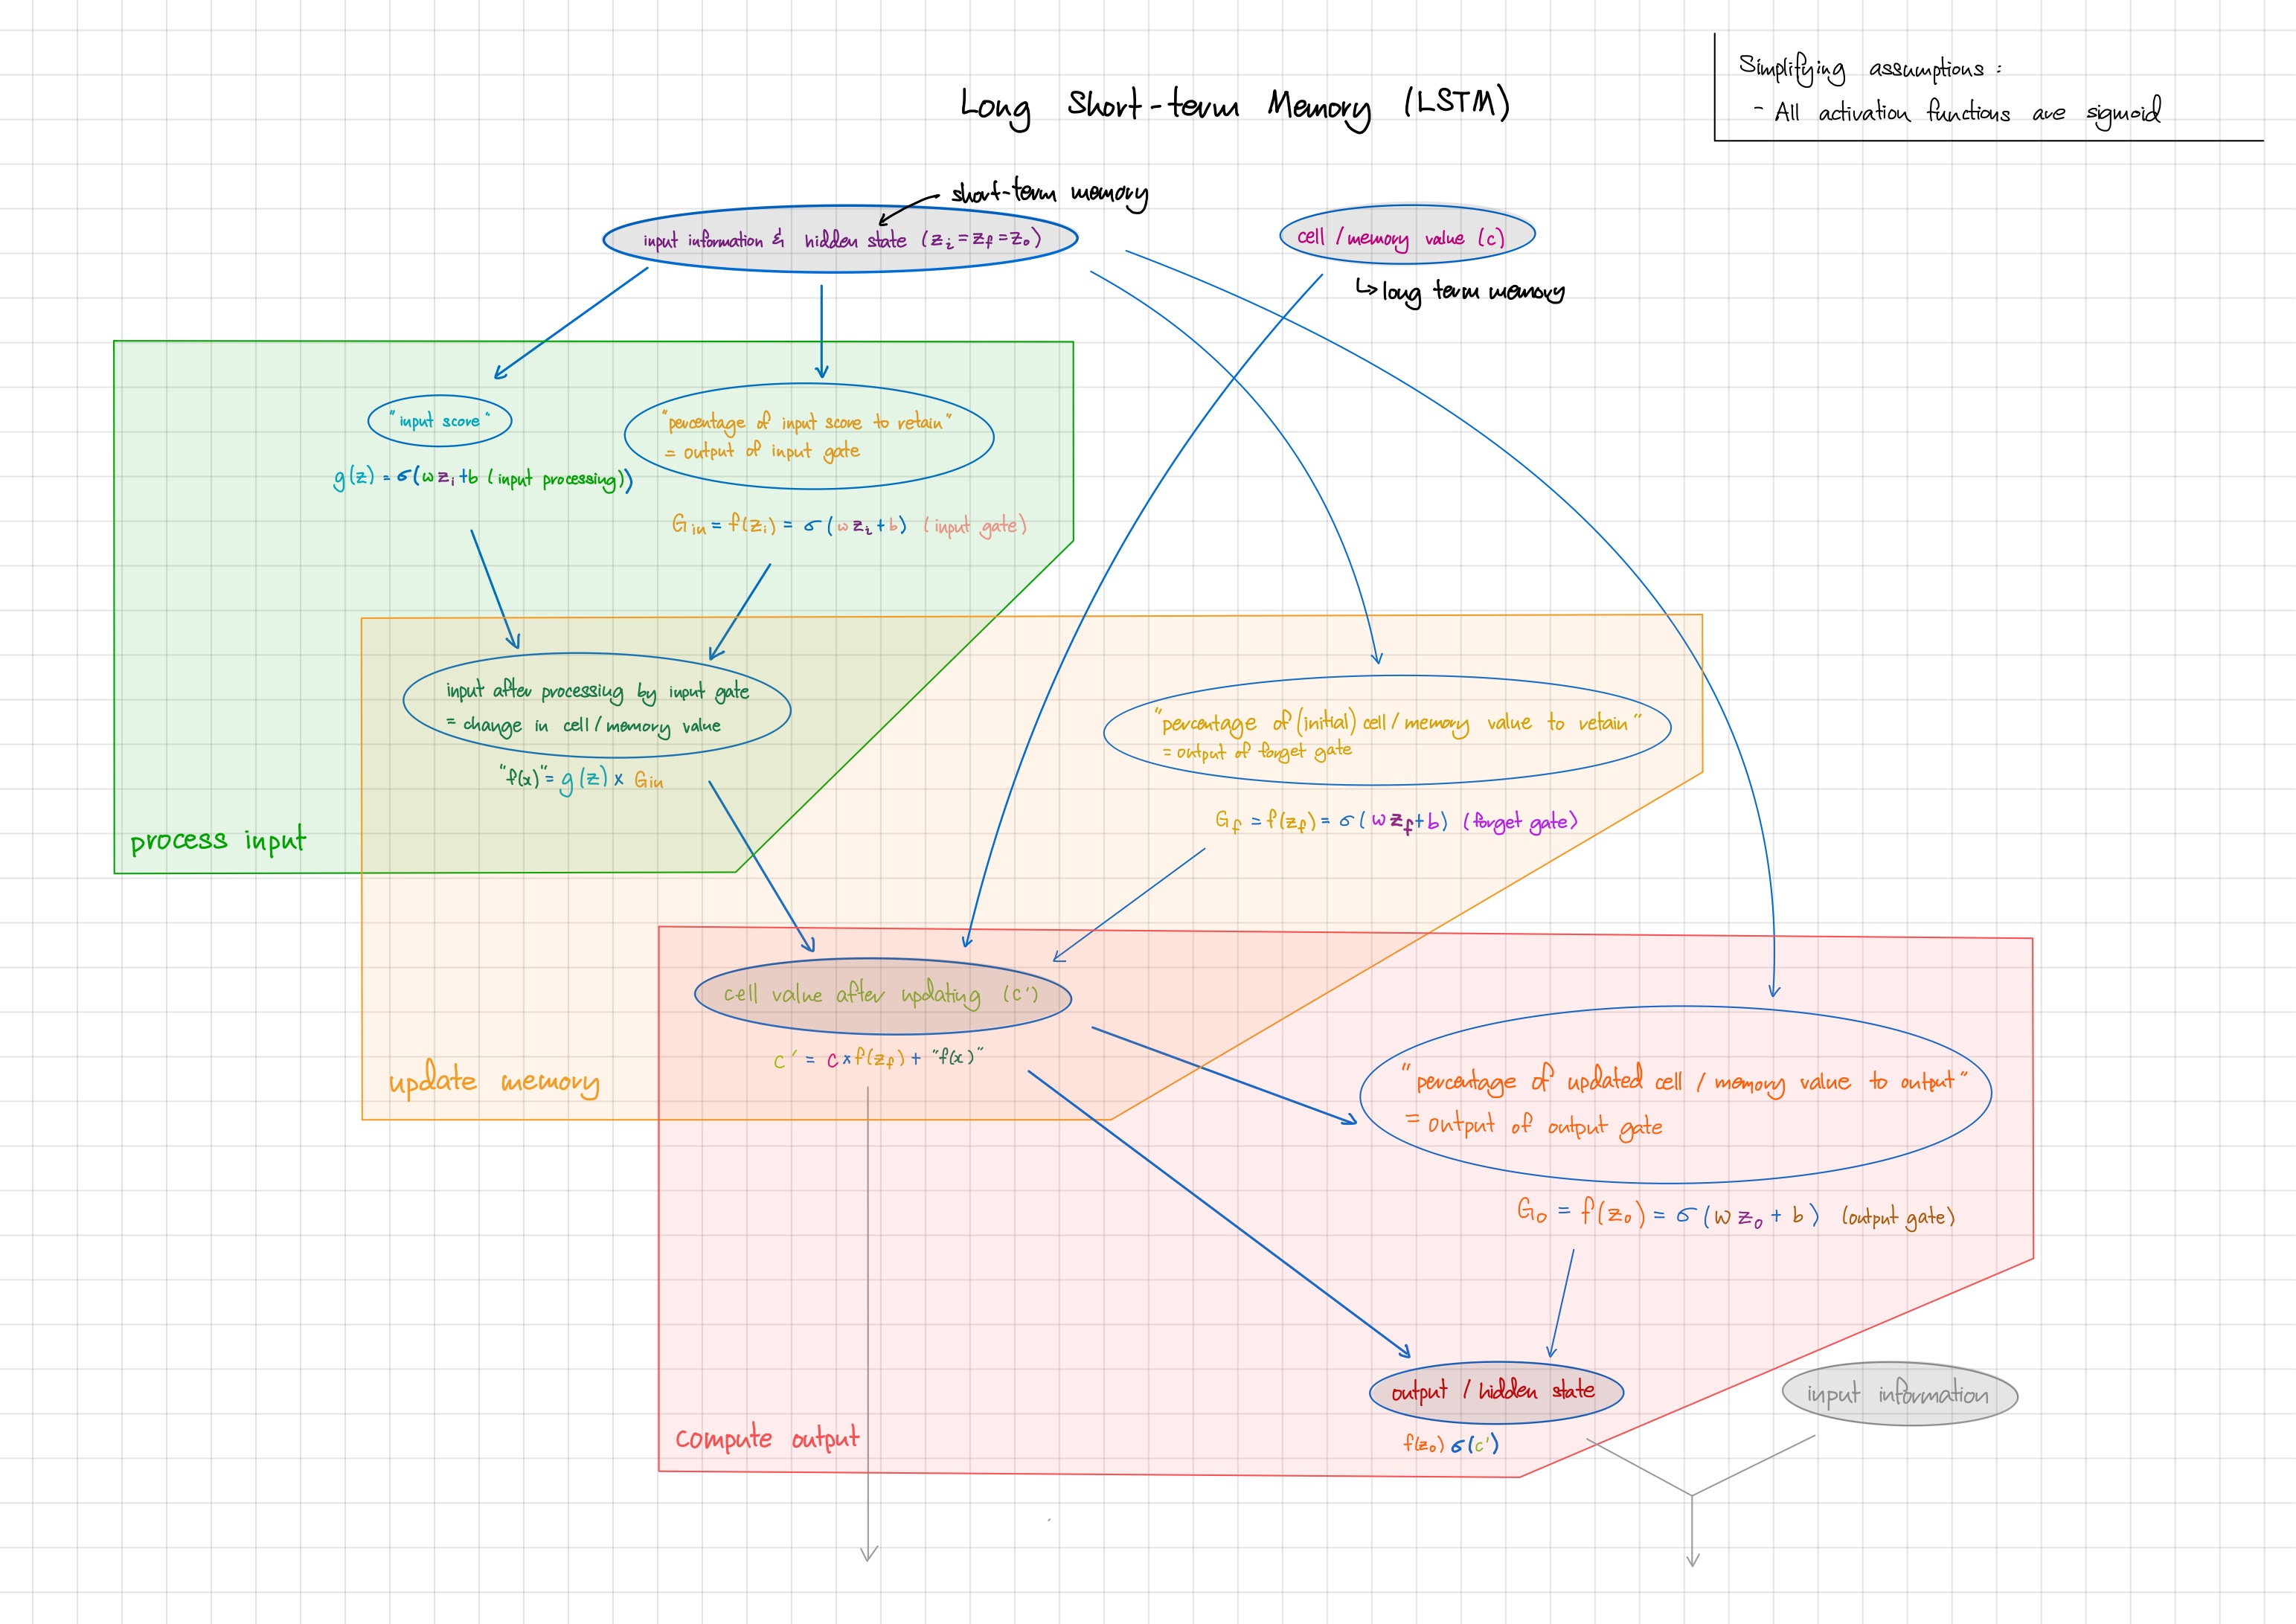 Simplifying assumptions :
- All activation functions are sigmoid
Long Short-term Memory (LSTM)
short-term memory
input information & hidden state (z_i = z_f = z_o)
cell / memory value (c)
↳ long term memory
"input score"
g(z) = σ(w z_i + b (input processing))
"percentage of input score to retain"
= output of input gate
G_in = f(z_i) = σ (w z_i + b) (input gate)
input after processing by input gate
= change in cell / memory value
"f(x)" = g(z) x G_in
process input
"percentage of (initial) cell / memory value to retain"
= output of forget gate
G_f = f(z_f) = σ (w z_f + b) (forget gate)
cell value after updating (c')
c' = c x f(z_f) + "f(x)"
update memory
"percentage of updated cell / memory value to output"
= output of output gate
G_o = f(z_o) = σ (w z_o + b) (output gate)
output / hidden state
f(z_o) σ(c')
input information
compute output